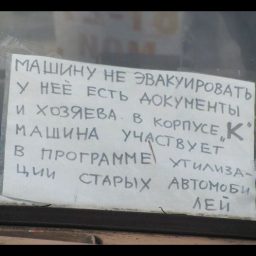 МАШИНУ НЕ ЭВАКУИРОВАТЬ
У НЕЁ ЕСТЬ ДОКУМЕНТЫ
И ХОЗЯЕВА. В КОРПУСЕ „К"
МАШИНА УЧАСТВУЕТ
В ПРОГРАММЕ УТИЛИЗА-
ЦИИ СТАРЫХ АВТОМОБИ
ЛЕЙ